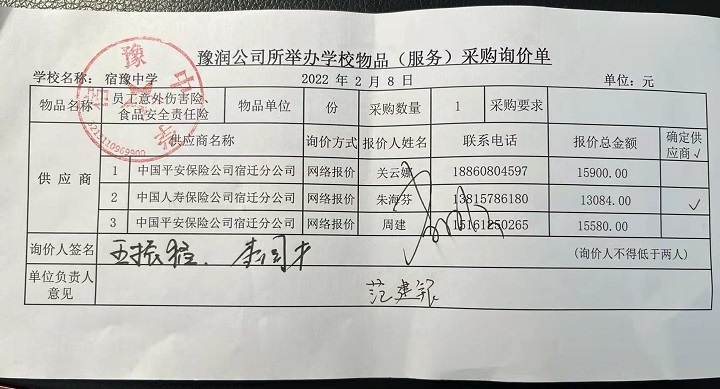 豫润公司所举办学校物品（服务）采购询价单
学校名称： 宿豫中学 2022 年 2 月 8 日 单位：元
物品名称 员工意外伤害险、食品安全责任险 物品单位 份 采购数量 1 采购要求
供应商 供应商名称 询价方式 报价人姓名 联系电话 报价总金额 确定供应商√
1 中国平安保险公司宿迁分公司 网络报价 关云娜 18860804597 15900.00
2 中国人寿保险公司宿迁分公司 网络报价 朱海芬 13815786180 13084.00 √
3 中国平安保险公司宿迁分公司 网络报价 周建 15161250265 15580.00
询价人签名 (询价人不得低于两人)
单位负责人意见 范建银